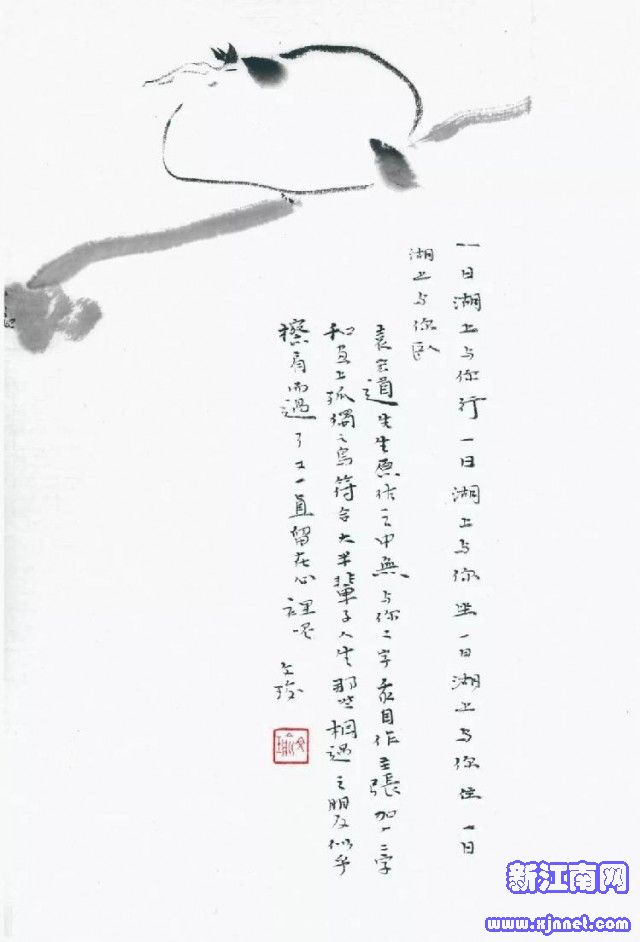 一日湖上与你行一日湖上与你坐一日湖上与你住一日
湖上与你卧
袁宏道先生原作之中無与你二字我自作主張加二字
和画上孤獨之鳥符合大半輩子人生那些相遇之朋友似乎
擦肩而過了又一直留在心裡
新江南网
www.xjnnet.com